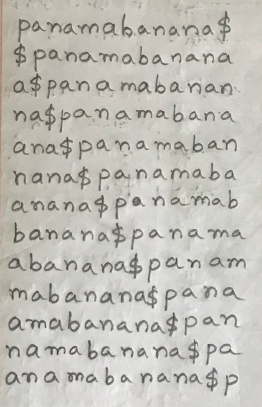 panamabanana$
$panamabanana
a$panamabanan
na$panamabana
ana$panamaban
nana$panamaba
anana$panamab
banana$panama
abanana$panam
mabanana$pana
amabanana$pan
namabanana$pa
anamabanana$p